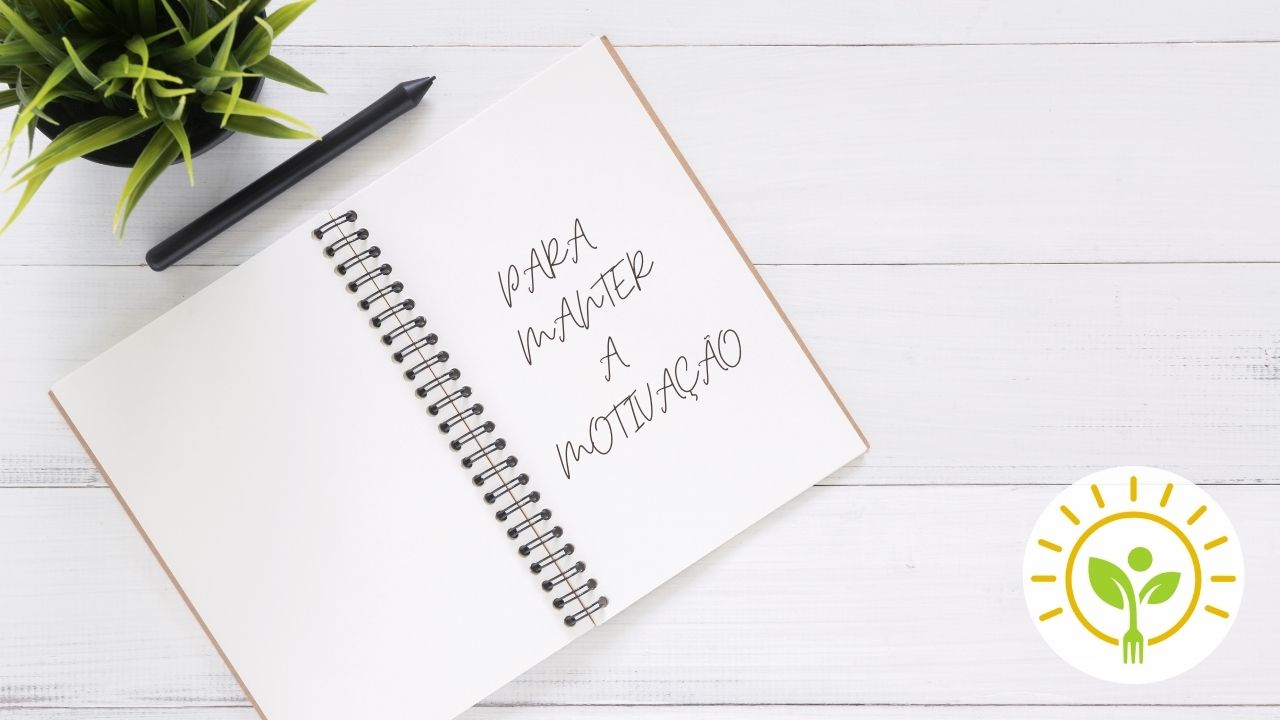 PARA
MANTER
A
MOTIVAÇÃO